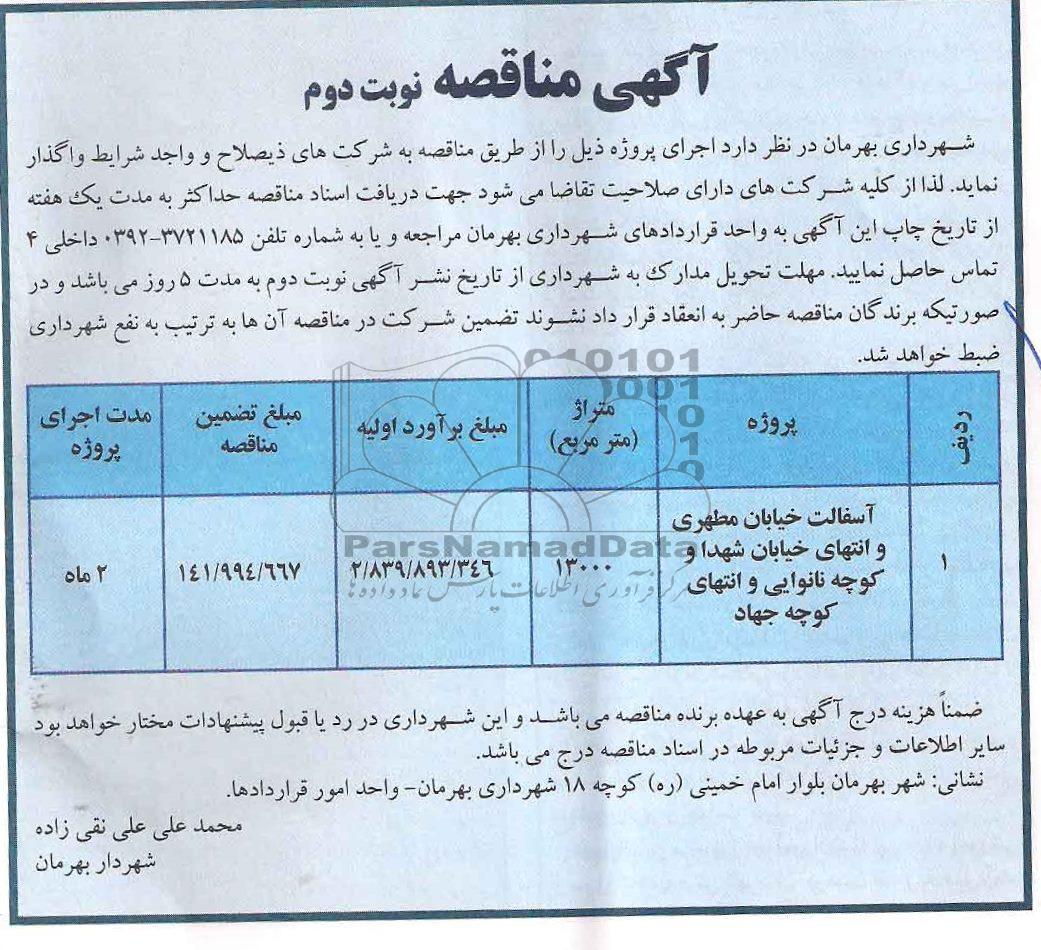 آگهی مناقصه نوبت دوم
شهرداری بهرمان در نظر دارد اجرای پروژه ذیل را از طریق مناقصه به شرکت های ذیصلاح و واجد شرایط واگذار
نماید. لذا از کلیه شرکت های دارای صلاحیت تقاضا می شود جهت دریافت اسناد مناقصه حداکثر به مدت یک هفته
از تاریخ چاپ این آگهی به واحد قراردادهای شهرداری بهرمان مراجعه و یا به شماره تلفن ۳۷۲۱۱۸۵-۰۳۹۲ داخلی ۴
تماس حاصل نمایید. مهلت تحویل مدارک به شهرداری از تاریخ نشر آگهی نوبت دوم به مدت ۵ روز می باشد و در
صورتیکه برندگان مناقصه حاضر به انعقاد قرار داد نشوند تضمین شرکت در مناقصه آن ها به ترتیب به نفع شهرداری
ضبط خواهد شد.
ردیف | پروژه | متراژ (متر مربع) | مبلغ برآورد اولیه | مبلغ تضمین مناقصه | مدت اجرای پروژه
۱ | آسفالت خیابان مطهری و انتهای خیابان شهدا و کوچه نانوایی و انتهای کوچه جهاد | ۱۳۰۰۰ | ۲/۸۳۹/۸۹۳/۳٤٦ | ۱٤۱/۹۹٤/٦٦۷ | ۲ ماه
ParsNamadData
مرکز فرآوری اطلاعات پارس نماد داده ها
ضمناً هزینه درج آگهی به عهده برنده مناقصه می باشد و این شهرداری در رد یا قبول پیشنهادات مختار خواهد بود
سایر اطلاعات و جزئیات مربوطه در اسناد مناقصه درج می باشد.
نشانی: شهر بهرمان بلوار امام خمینی (ره) کوچه ۱۸ شهرداری بهرمان- واحد امور قراردادها.
محمد علی علی نقی زاده
شهردار بهرمان